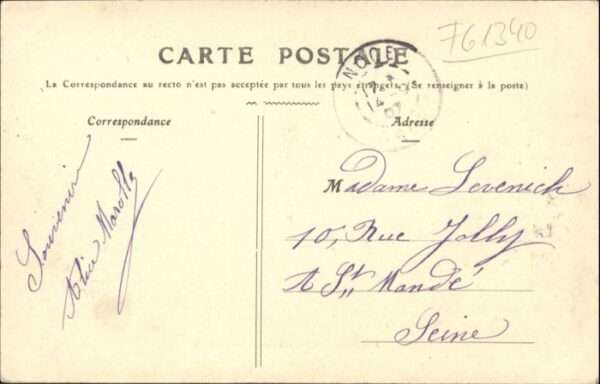 761340
CARTE POSTALE
La Correspondance au recto n'est pas acceptée par tous les pays étrangers. (Se renseigner à la poste)
Correspondance
Souvenir
Alice
Adresse
Madame Levenich
10, Rue Jolly
A St Mandé
Seine